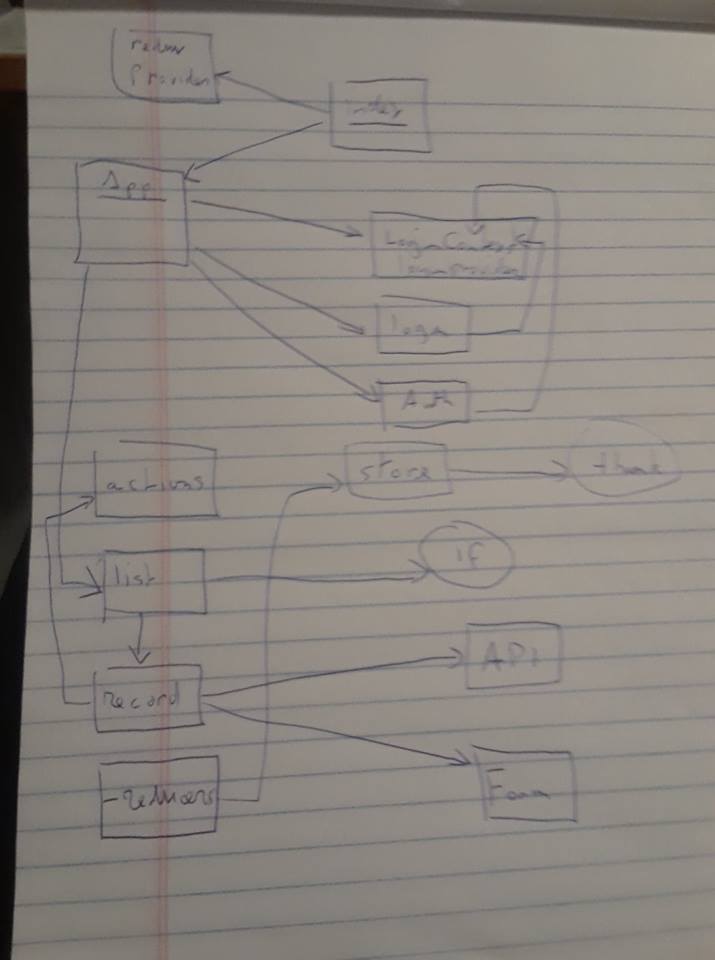 redux
Provider
index
App
Login Context
login provider
login
Auth
actions
store
thunk
list
if
record
API
reducers
Form